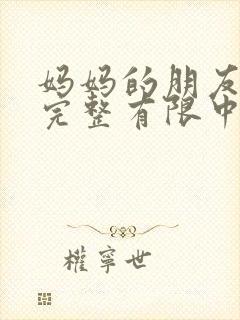 妈妈的朋友
完整有限中
權寧世